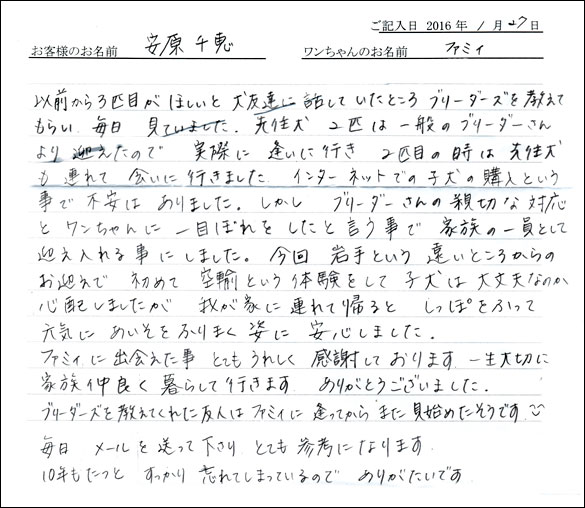 ご記入日 2016 年 1 月 27 日
お客様のお名前 安原 千恵 ワンちゃんのお名前 ファミィ
以前から3匹目がほしいと 犬友達に話していたところ ブリーダーズを教えて
もらい 毎日 見ていました. 先住犬 2匹は一般のブリーダーさん
より 迎えたので 実際に逢いに行き 2匹目の時は先住犬
も連れて 会いに行きました. インターネットでの子犬の購入という
事で不安はありました。しかし ブリーダーさんの親切な対応
とワンちゃんに一目ぼれをしたと言う事で 家族の一員として
迎え入れる事にしました。今回 岩手という遠いところからの
お迎えで 初めて 空輸という体験をして 子犬は大丈夫なのか
心配しましたが 我が家に連れて帰ると しっぽをふって
元気にあいそをふりまく姿に 安心しました.
ファミィに出会えた事 とてもうれしく 感謝しております 一生大切に
家族仲良く暮らして行きます ありがとうございました.
ブリーダーズを教えてくれた友人はファミィに逢ってから また見始めたそうです
毎日 メールを送って下さり とても参考になります
10年もたつと すっかり忘れてしまっているので ありがたいです